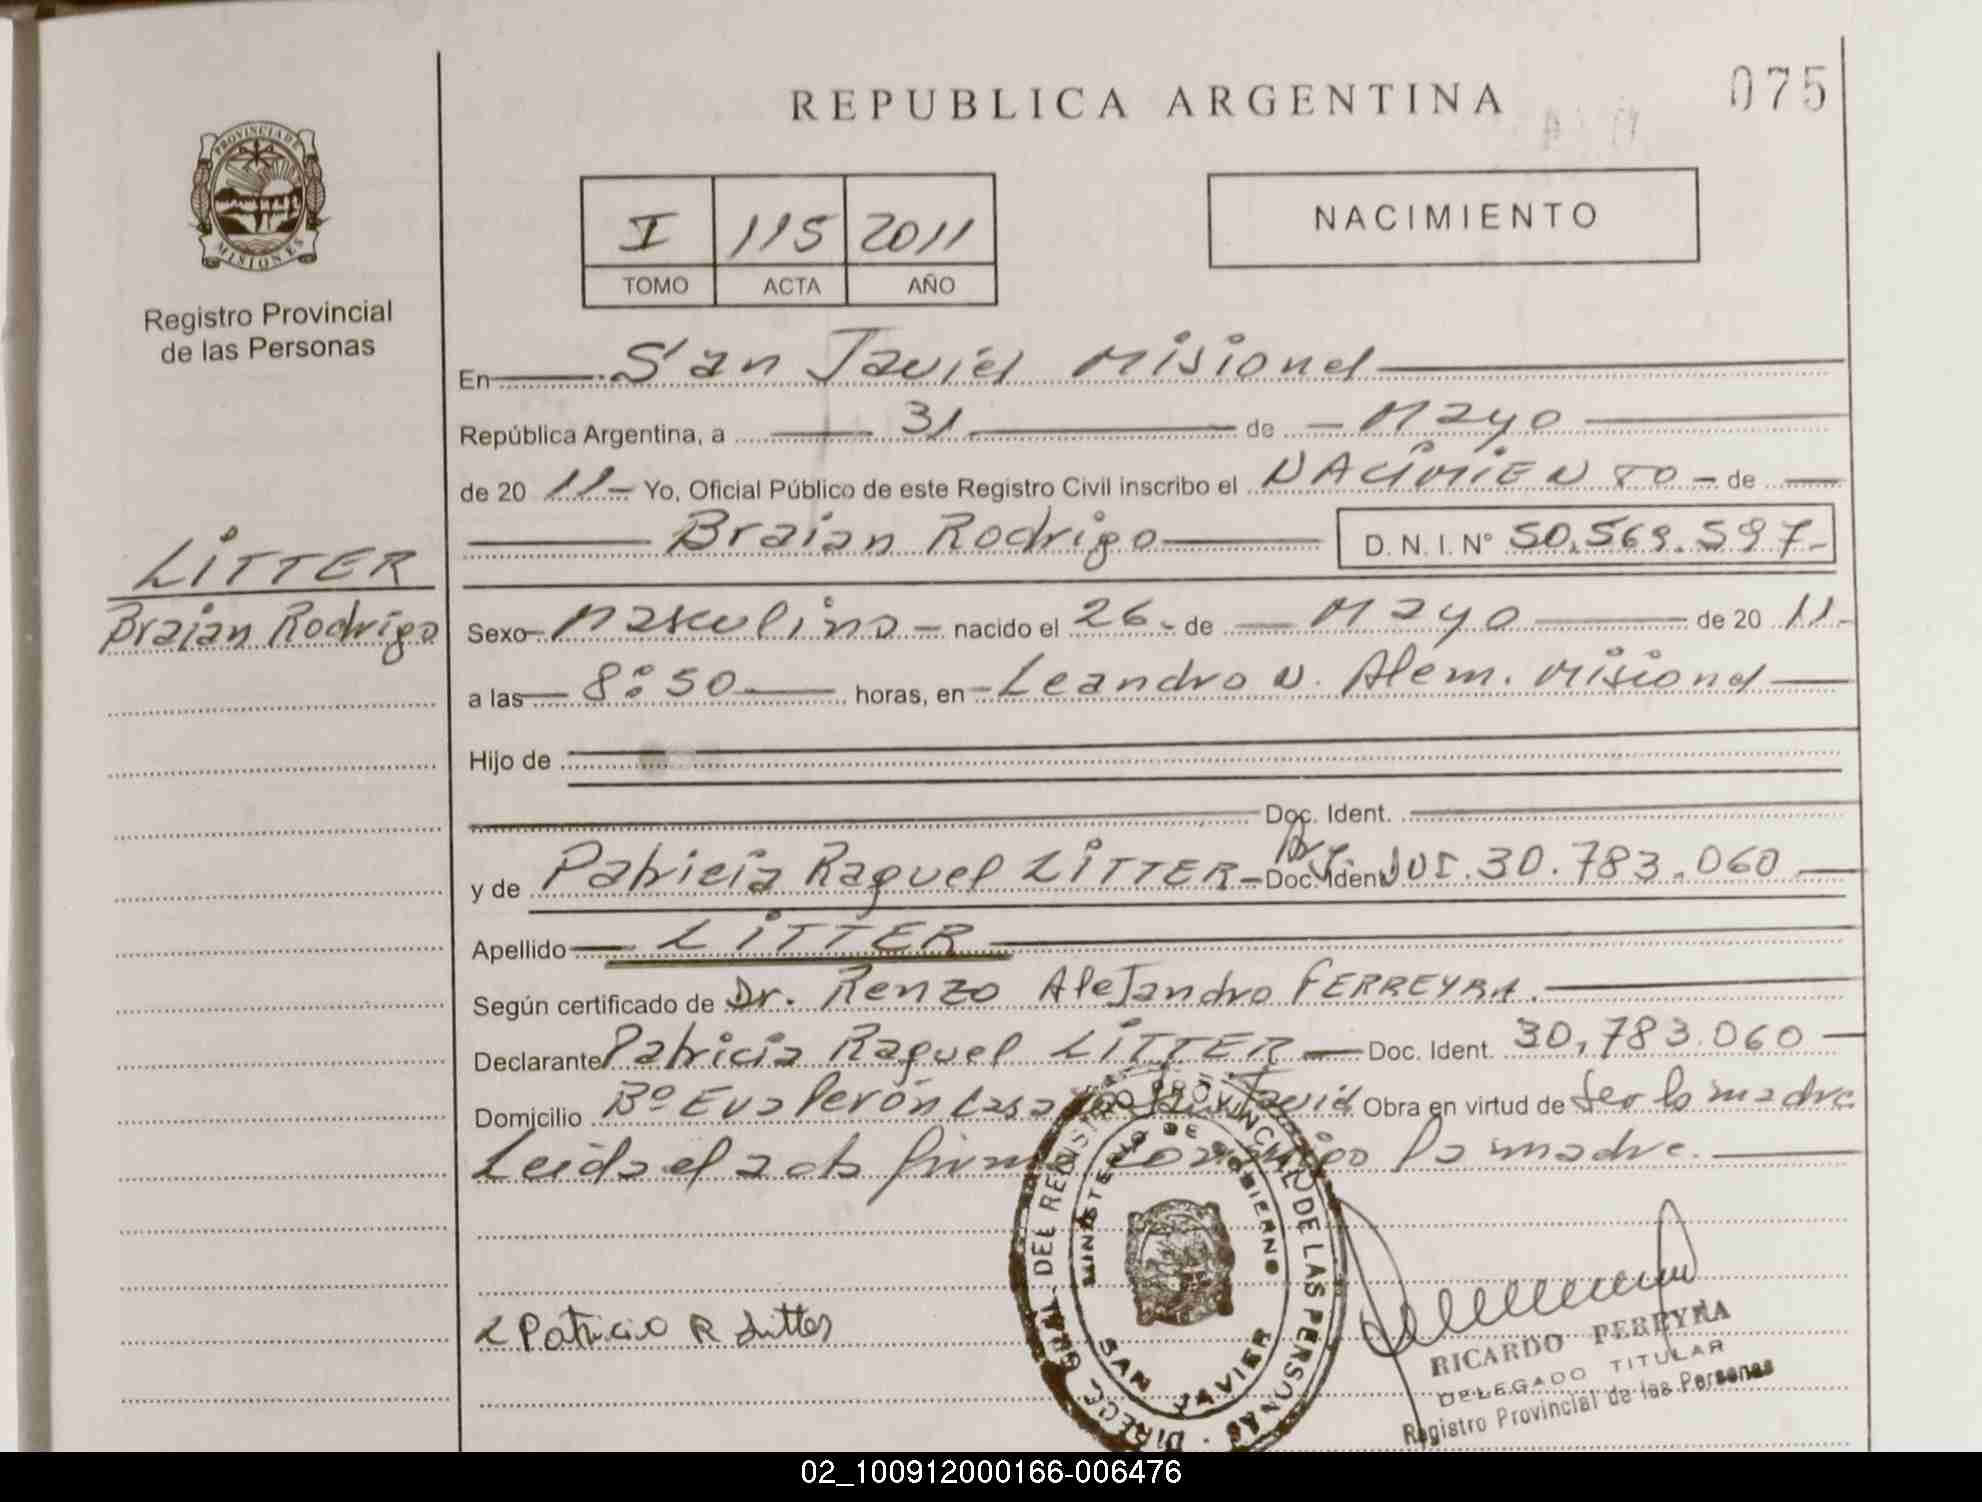 REPUBLICA ARGENTINA
075
PROVINCIA DE
MISIONES
Registro Provincial
de las Personas
I 115 2011
TOMO ACTA AÑO
NACIMIENTO
En San Javier Misiones
República Argentina, a 31 de Mayo
de 20 11 Yo, Oficial Público de este Registro Civil inscribo el NACIMIENTO de
Braian Rodrigo D. N. I. Nº 50.569.597
LITTER
Braian Rodrigo
Sexo Masculino nacido el 26 de Mayo de 20 11
a las 8:50 horas, en Leandro N. Alem. Misiones
Hijo de
Doc. Ident.
y de Patricia Raquel LITTER Doc. Ident. 30.783.060
Apellido LITTER
Según certificado de Dr. Renzo Alejandro FERREYRA.
Declarante Patricia Raquel LITTER Doc. Ident. 30.783.060
Domicilio Bº Eva Perón casa San Javier Obra en virtud de ser la madre
Leida el acta firma conmigo la madre.
Patricia R Litter
DIRECC. GRAL. DEL REGISTRO PROVINCIAL DE LAS PERSONAS
MINISTERIO DE GOBIERNO
SAN JAVIER
RICARDO PEREYRA
DELEGADO TITULAR
Registro Provincial de las Personas
02_100912000166-006476